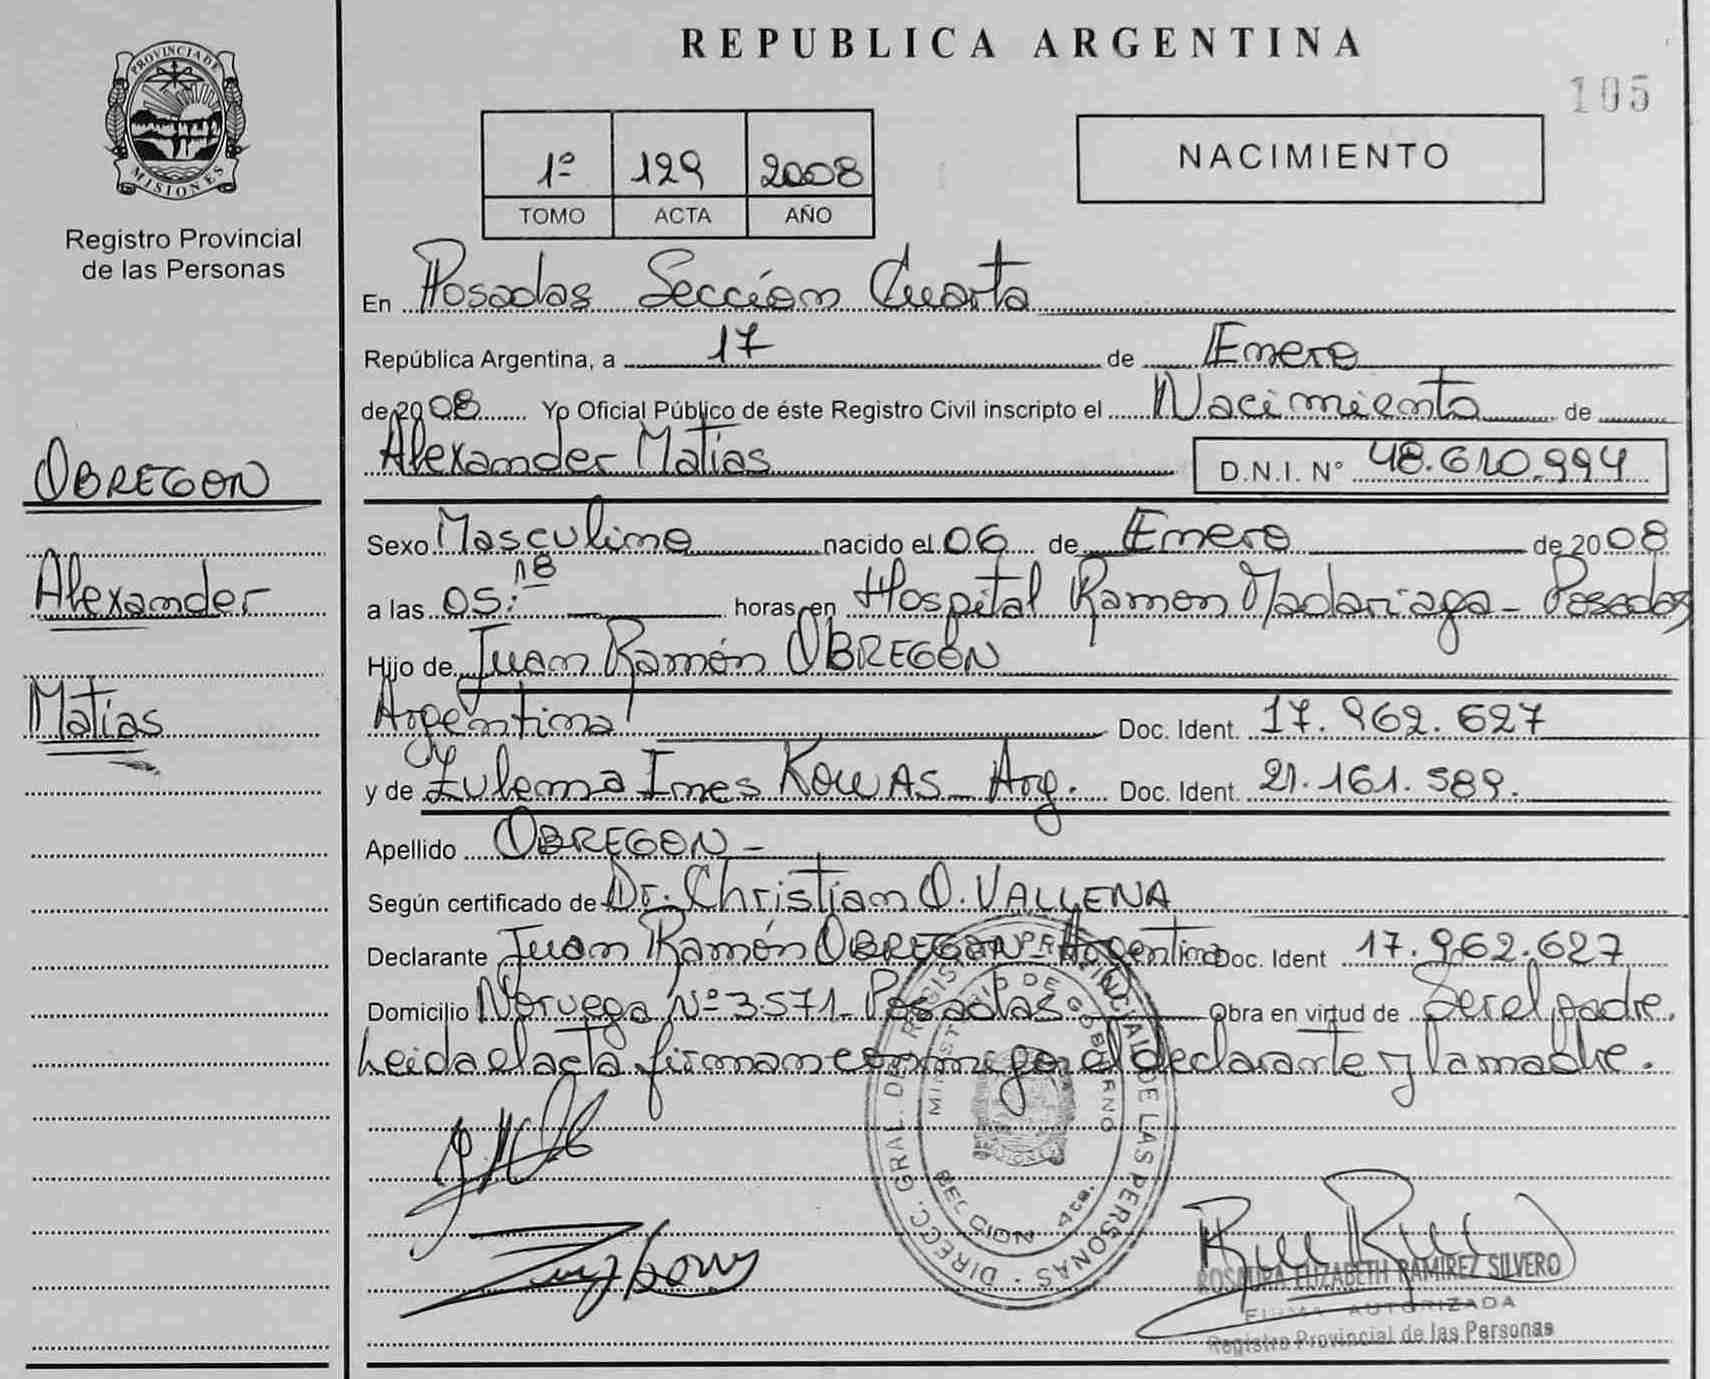 PROVINCIA DE
MISIONES
Registro Provincial
de las Personas
OBREGON
Alexander
Matías
REPUBLICA ARGENTINA
105
1º 129 2008
TOMO ACTA AÑO
NACIMIENTO
En Posadas Sección Cuarta
República Argentina, a 17 de Enero
de 2008 Yo Oficial Público de éste Registro Civil inscripto el Nacimiento de
Alexander Matías D.N.I. Nº 48.610.994
Sexo Masculino nacido el 06 de Enero de 2008
a las 05:18 horas, en Hospital Ramon Madariaga - Posadas
Hijo de Juan Ramón OBREGÓN
Argentina Doc. Ident. 17.962.627
y de Zulema Ines KOWAS - Arg. Doc. Ident. 21.161.589.
Apellido OBREGON -
Según certificado de Dr. Christian O. VALLENA
Declarante Juan Ramón OBREGON - Argentina Doc. Ident 17.962.627
Domicilio Noruega Nº 3571 - Posadas Obra en virtud de Ser el padre.
Leida el acta firman conmigo el declarante y la madre.
DIRECC. GRAL. DE REGISTRO PROVINCIAL DE LAS PERSONAS
MINISTERIO DE GOBIERNO
SECCION 4ta.
ROSAURA ELIZABETH RAMIREZ SILVERO
FIRMA AUTORIZADA
Registro Provincial de las Personas